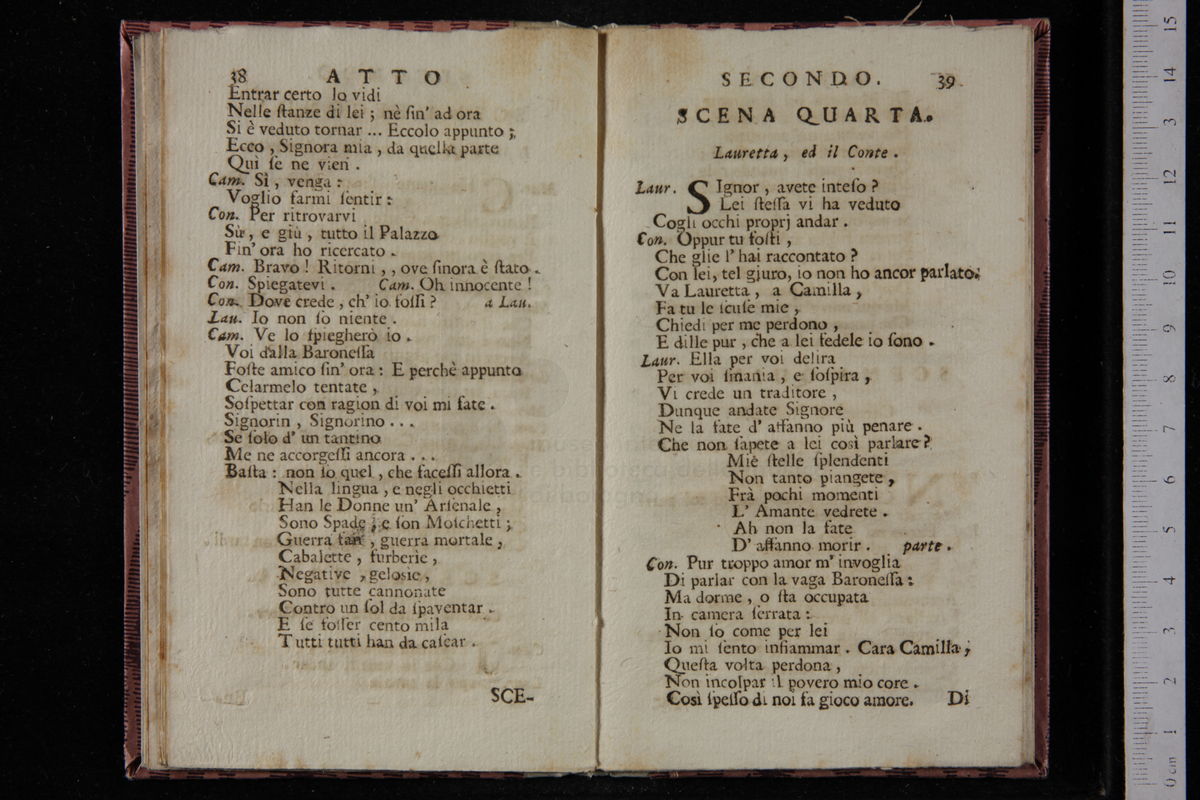 38 ATTO
Entrar certo lo vidi
Nelle ſtanze di lei ; nè ſin' ad ora
Si è veduto tornar ... Eccolo appunto ;
Ecco , Signora mia , da quella parte
Quì ſe ne vien .
Cam. Sì , venga :
Voglio farmi ſentir :
Con. Per ritrovarvi
Sù , e giù , tutto il Palazzo
Fin' ora ho ricercato .
Cam. Bravo ! Ritorni , , ove ſinora è ſtato .
Con. Spiegatevi . Cam. Oh innocente !
Con. Dove crede , ch' io foſſi ? a Lau.
Lau. Io non ſo niente .
Cam. Ve lo ſpiegherò io .
Voi dalla Baroneſſa
Foſte amico ſin' ora : E perchè appunto
Celarmelo tentate ,
Soſpettar con ragion di voi mi fate .
Signorin , Signorino . . .
Se ſolo d' un tantino
Me ne accorgeſſi ancora . . .
Baſta : non ſo quel , che faceſſi allora .
Nella lingua , e negli occhietti
Han le Donne un' Arſenale ,
Sono Spade , e ſon Moſchetti ;
Guerra fan , guerra mortale ,
Cabalette , furberie ,
Negative , geloſie ,
Sono tutte cannonate
Contro un ſol da ſpaventar .
E ſe foſſer cento mila
Tutti tutti han da caſcar .
SCE-
SECONDO. 39
SCENA QUARTA.
Lauretta , ed il Conte .
Laur. SIgnor , avete inteſo ?
Lei ſteſſa vi ha veduto
Cogli occhi proprj andar .
Con. Oppur tu foſti ,
Che glie l' hai raccontato ?
Con lei, tel gjuro, io non ho ancor parlato;
Va Lauretta , a Camilla ,
Fa tu le ſcuſe mie ,
Chiedi per me perdono ,
E dille pur , che a lei fedele io ſono .
Laur. Ella per voi delira
Per voi ſmania , e ſoſpira ,
Vi crede un traditore ,
Dunque andate Signore
Ne la fate d' affanno più penare .
Che non ſapete a lei così parlare ?
Miè ſtelle ſplendenti
Non tanto piangete ,
Frà pochi momenti
L' Amante vedrete .
Ah non la fate
D' affanno morir . parte .
Con. Pur troppo amor m' invoglia
Di parlar con la vaga Baroneſſa :
Ma dorme , o ſta occupata
In camera ſerrata :
Non ſo come per lei
Io mi ſento infiammar . Cara Camilla ,
Queſta volta perdona ,
Non incolpar il povero mio core .
Così ſpeſſo di noi fa gioco amore. Di